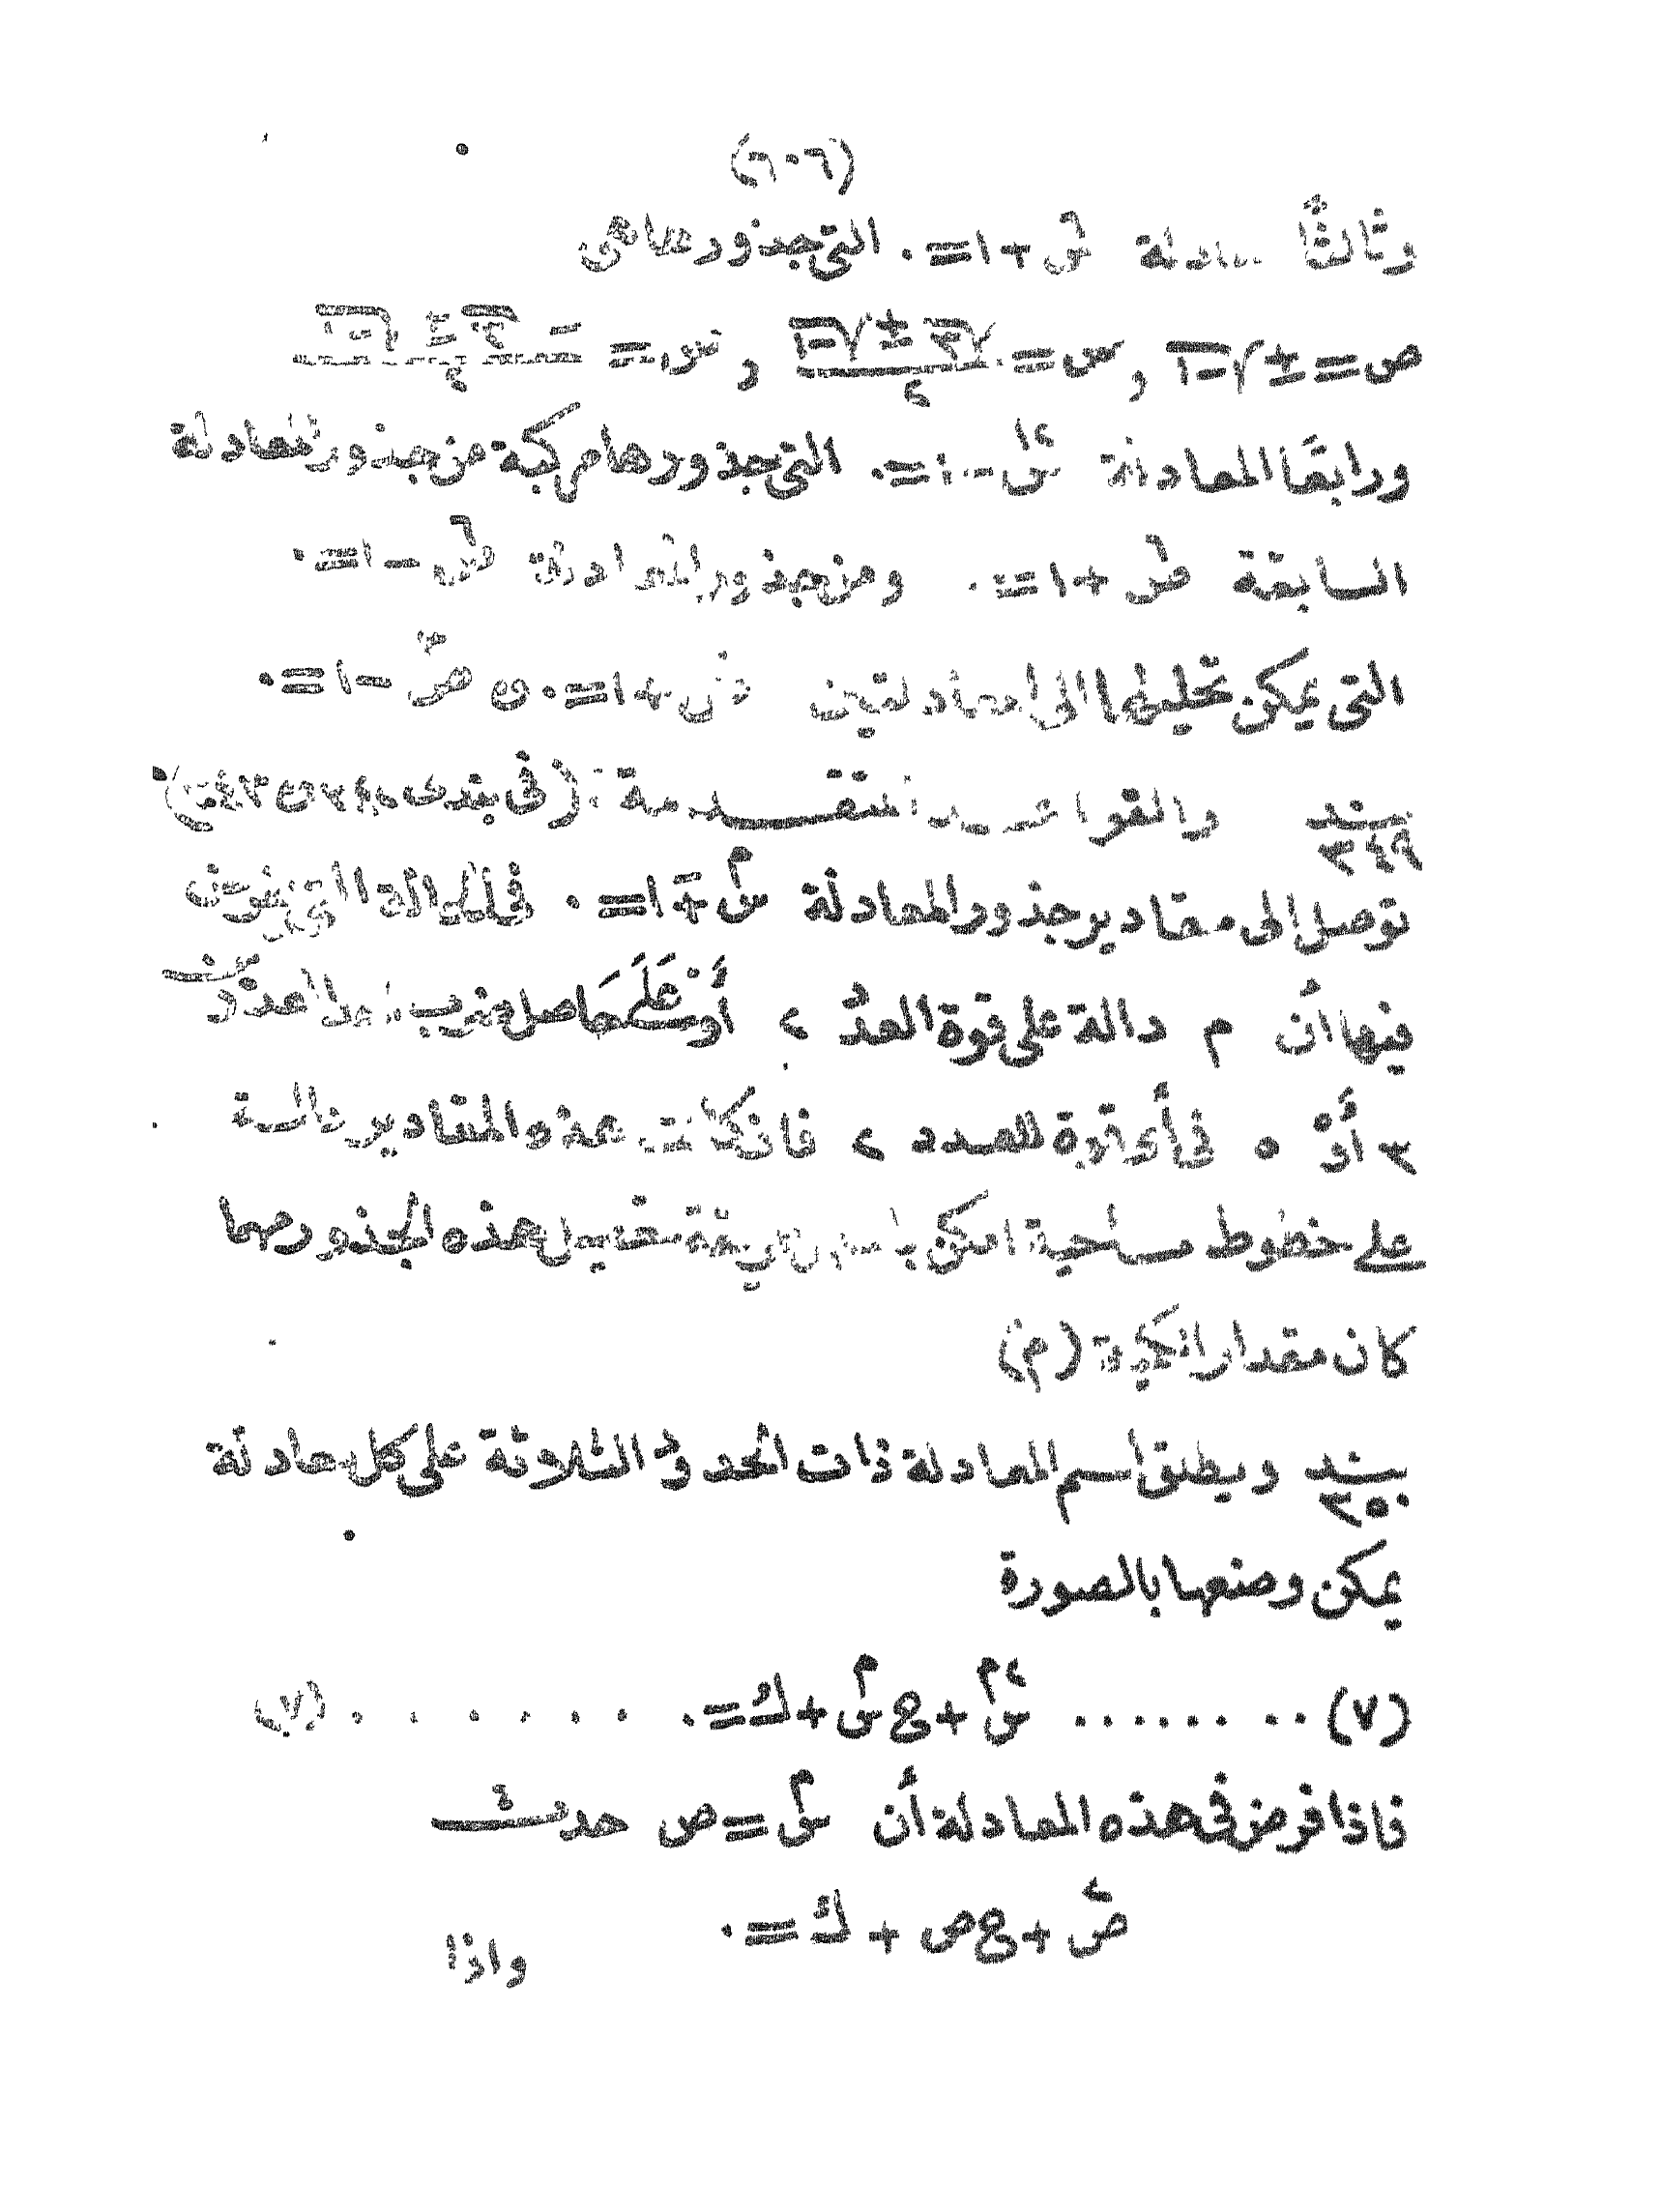 (٦٠٦)
وثالثًا معادلة س٦ + ١ = ٠ التى جذورها هى
ص = ± √-١ , س = (√٣ ± √-١)/٢ , س = (-√٣ ± √-١)/٢
ورابعًا المعادلة س١٢ - ١ = ٠ التى جذورها مركبة من جذور المعادلة
السابقة س٦ + ١ = ٠ ومن جذور المعادلة س٦ - ١ = ٠
التى يمكن تحليلها الى المعادلتين س٣ + ١ = ٠ و س٣ - ١ = ٠
بند ٣٤٩ والقواعد المتقدمة (فى بندى
توصل الى مقادير جذور المعادلة سم ∓ ١ = ٠ فى الحالة التى يفرض
فيها أن م دالة على قوة العدد ٢ أو على حاصل ضرب احد العددين
٣ أو ٥ فى أى قوة للعدد ٢ فان كانت هذه المقادير دالة
على خطوط مساحية امكن تحصيل هذه الجذور مهما
كان مقدار الكمية (م)
بند ٣٥٠ ويطلق اسم المعادلة ذات الحدود الثلاثة على كل معادلة
يمكن وضعها بالصورة
(٧) ........ س٢م + ع سم + ك = ٠ ....... (٧)
فاذا فرض فى هذه المعادلة أن سم = ص حدث
ص٢ + ع ص + ك = ٠
واذا